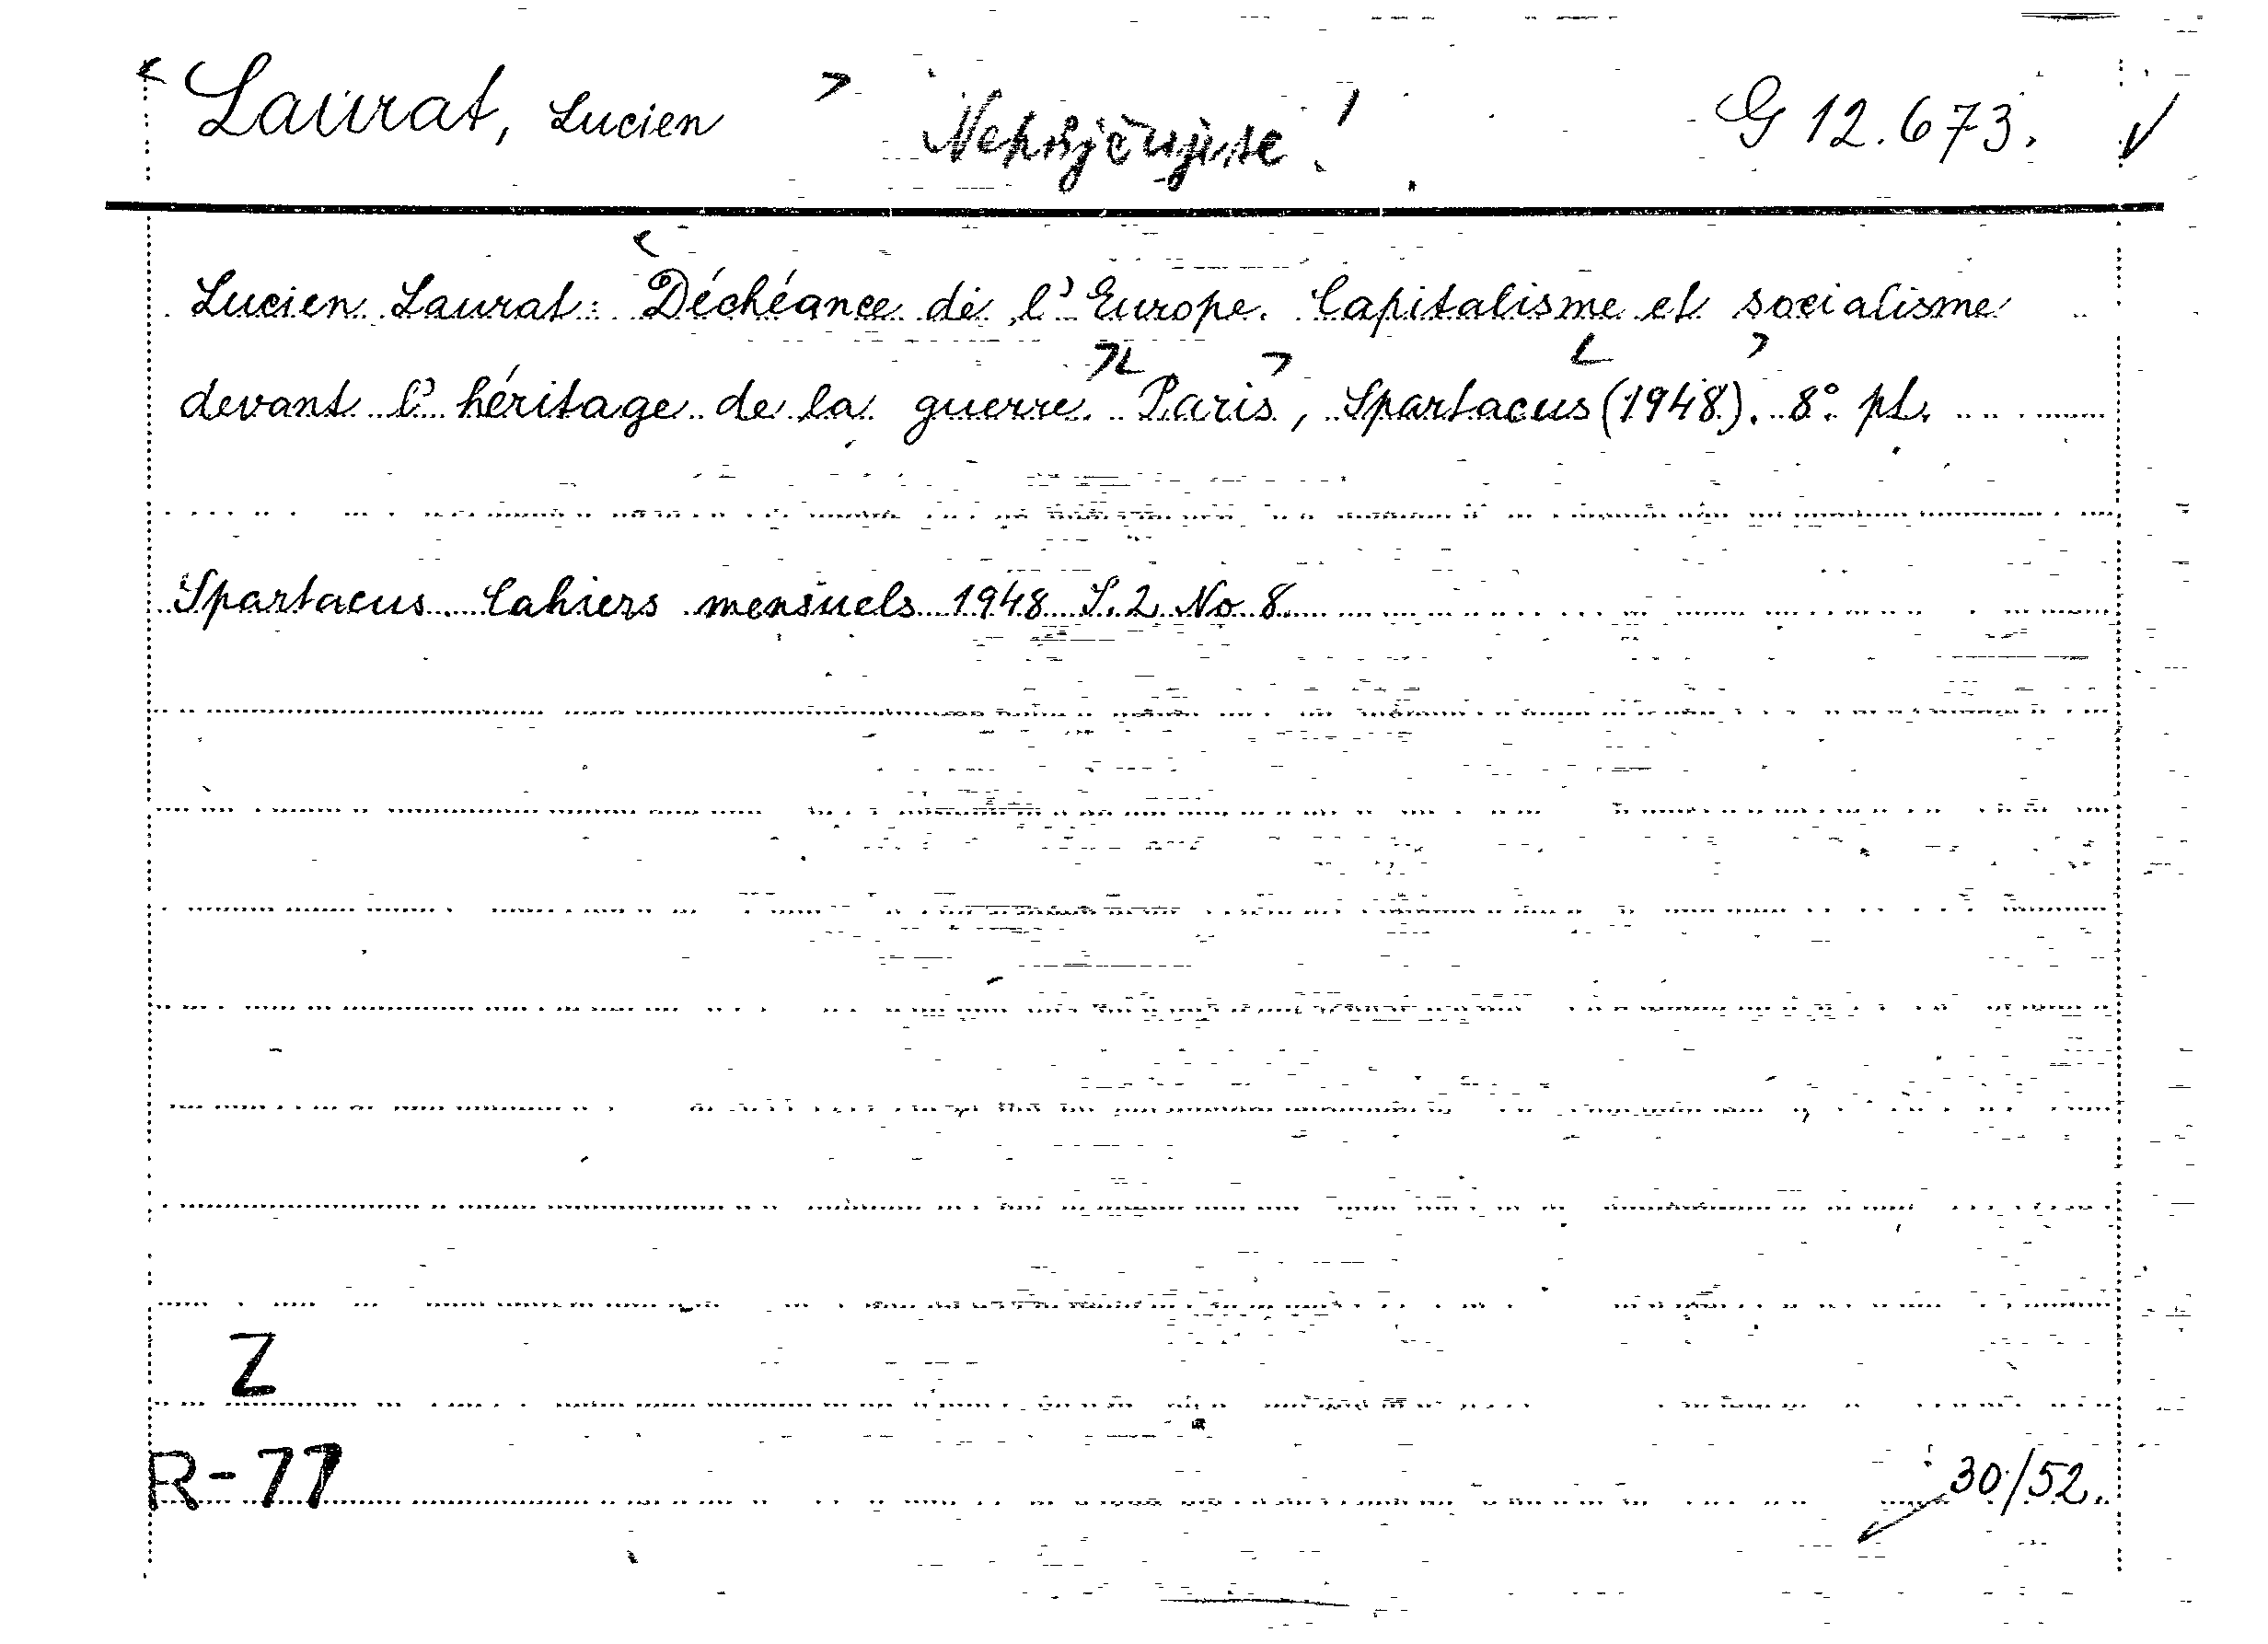 Laurat, Lucien Nepůjčuje se! G 12.673.
Lucien Laurat: Déchéance de l'Europe. Capitalisme et socialisme
devant l'héritage de la guerre. Paris, Spartacus (1948). 8° pl.
Spartacus. Cahiers mensuels 1948 S. 2 No 8
Z
R-77
30/52.